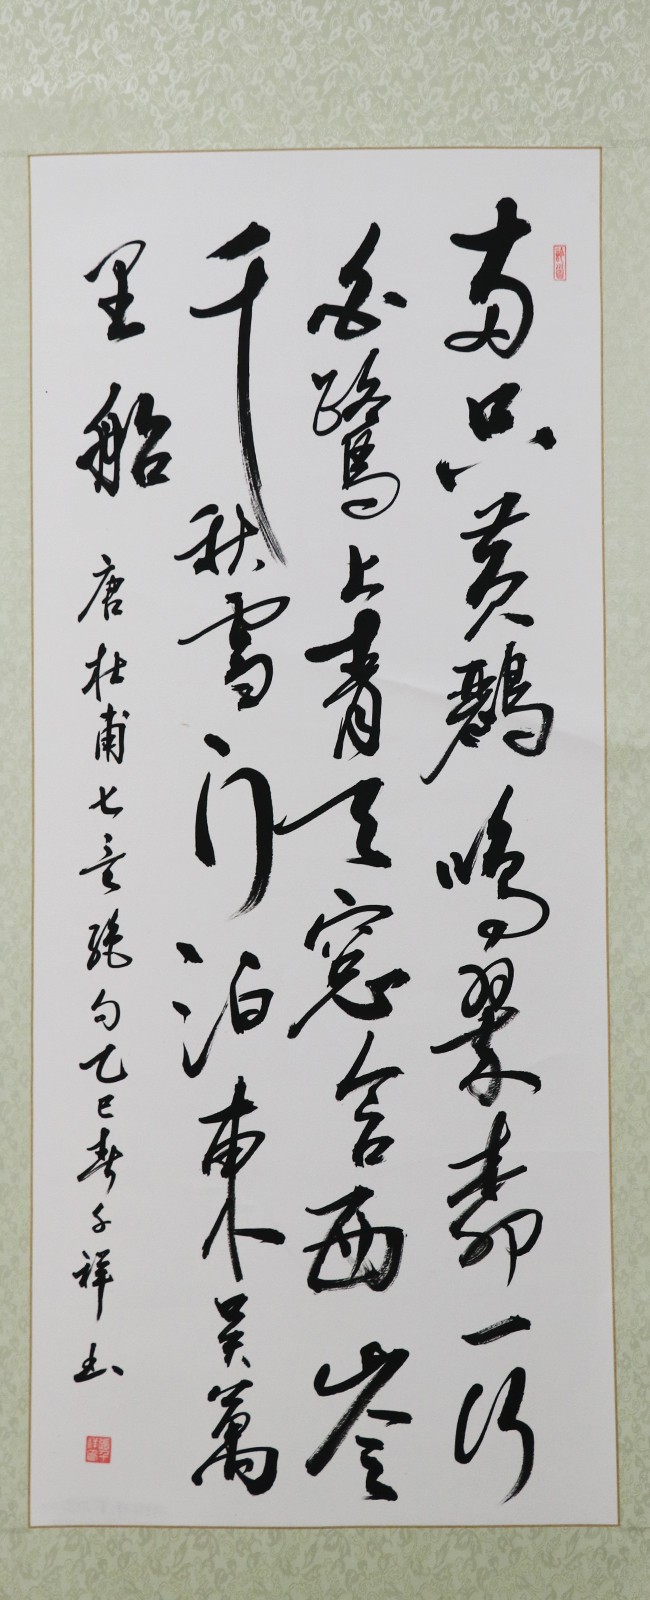 两只黄鸝鳴翠柳一行
白鷺上青天窓含西岺
千秋雪门泊東吴萬
里船 唐杜甫七言绝句乙巳春子祥书